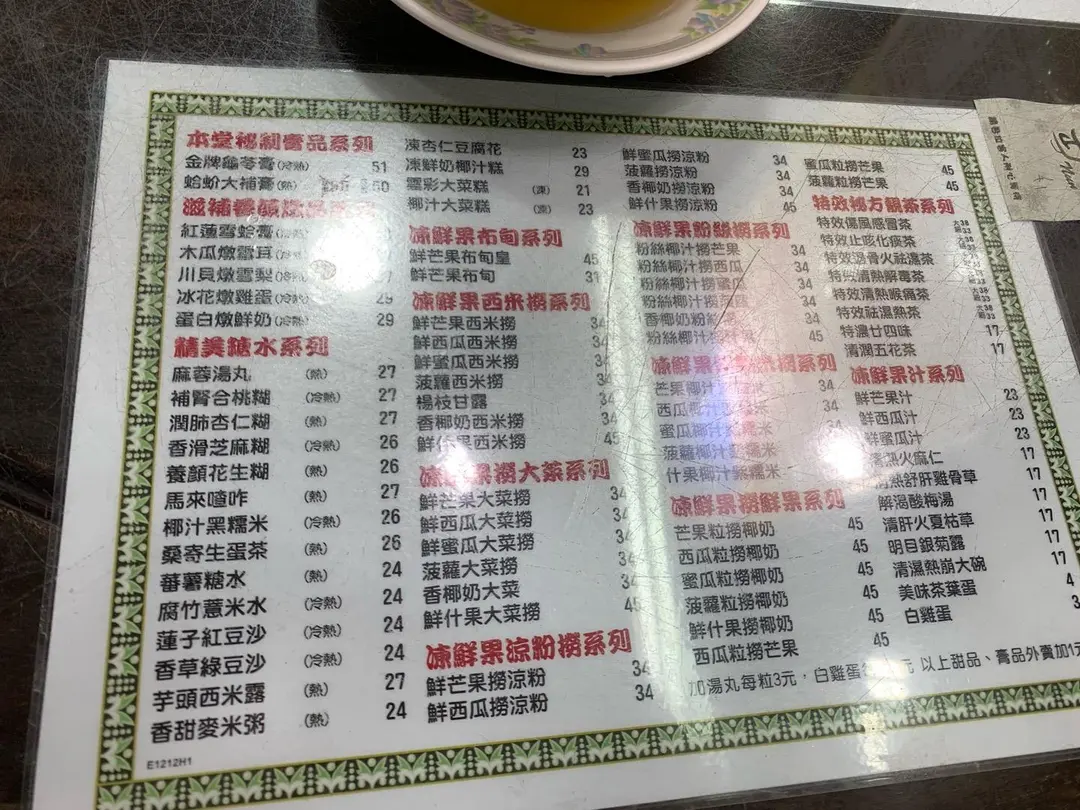 本堂秘制膏品系列
金牌龜苓膏(冷熱) 51
蛤蚧大補膏(熱)
滋補養顏燉品系列
紅蓮雪蛤膏
木瓜燉雪耳
川貝燉雪梨
冰花燉雞蛋(冷熱) 29
蛋白燉鮮奶(冷熱) 29
精美糖水系列
麻蓉湯丸 (熱) 27
補腎合桃糊 (冷熱) 27
潤肺杏仁糊 (熱) 27
香滑芝麻糊 (冷熱) 26
養顏花生糊 (熱) 26
馬來喳咋 (熱) 27
椰汁黑糯米 (冷熱) 26
桑寄生蛋茶 (熱) 26
蕃薯糖水 (熱) 24
腐竹薏米水 (冷熱) 24
蓮子紅豆沙 (冷熱) 24
香草綠豆沙 (冷熱) 24
芋頭西米露 (熱) 27
香甜麥米粥 (熱) 24
E1212H1
凍杏仁豆腐花 23
凍鮮奶椰汁糕 29
霞彩大菜糕 (凍) 21
椰汁大菜糕 (凍) 23
凍鮮果布甸系列
鮮芒果布甸皇 45
鮮芒果布甸 31
凍鮮果西米撈系列
鮮芒果西米撈 34
鮮西瓜西米撈 34
鮮蜜瓜西米撈 34
菠蘿西米撈 34
楊枝甘露 34
香椰奶西米撈 34
鮮什果西米撈 45
凍鮮果撈大菜系列
鮮芒果大菜撈 34
鮮西瓜大菜撈 34
鮮蜜瓜大菜撈 34
菠蘿大菜撈 34
香椰奶大菜 34
鮮什果大菜撈 45
凍鮮果涼粉撈系列
鮮芒果撈涼粉 34
鮮西瓜撈涼粉 34
鮮蜜瓜撈涼粉 34
菠蘿撈涼粉 34
香椰奶撈涼粉 34
鮮什果撈涼粉 45
凍鮮果粉絲撈系列
粉絲椰汁撈芒果 34
粉絲椰汁撈西瓜 34
粉絲椰汁撈蜜瓜 34
粉絲椰汁撈菠蘿 34
香椰奶粉絲 34
粉絲椰汁撈 45
凍鮮果
芒果椰汁 34
西瓜椰汁 34
蜜瓜椰汁紫糯米
菠蘿椰汁紫糯米
什果椰汁紫糯米
凍鮮果撈鮮果系列
芒果粒撈椰奶 45
西瓜粒撈椰奶 45
蜜瓜粒撈椰奶 45
菠蘿粒撈椰奶 45
鮮什果撈椰奶 45
西瓜粒撈芒果 45
蜜瓜粒撈芒果 45
菠蘿粒撈芒果 45
特效祕方涼茶系列
特效傷風感冒茶 大38 細33
特效止咳化痰茶 大38 細33
特效退骨火祛濕茶 大38 細33
特效清熱解毒茶 大38 細33
特效清熱喉痛茶 大38 細33
特效祛濕熱茶 大38 細33
特濃廿四味 17
清潤五花茶 17
凍鮮果汁系列
鮮芒果汁 23
鮮西瓜汁 23
鮮蜜瓜汁 23
清熱火麻仁 17
清熱舒肝雞骨草 17
解渴酸梅湯 17
清肝火夏枯草 17
明目銀菊露 17
清濕熱崩大碗 17
美味茶葉蛋 4
白雞蛋 3
加湯丸每粒3元，白雞蛋 元，以上甜品、膏品外賣加1元